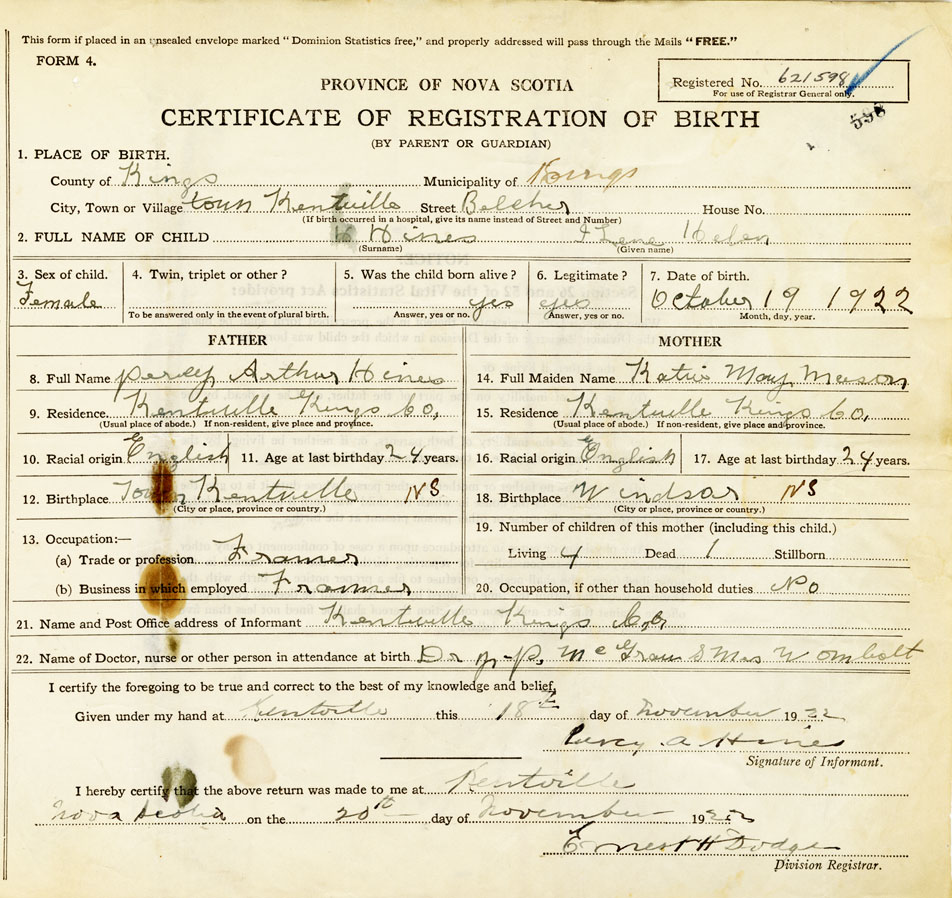 This form if placed in an unsealed envelope marked "Dominion Statistics free," and properly addressed will pass through the Mails "FREE."
FORM 4.
Registered No. 621598
For use of Registrar General only.
598
PROVINCE OF NOVA SCOTIA
CERTIFICATE OF REGISTRATION OF BIRTH
(BY PARENT OR GUARDIAN)
1. PLACE OF BIRTH.
County of Kings Municipality of Kings
City, Town or Village town Kentville Street Belcher House No.
(If birth occurred in a hospital, give its name instead of Street and Number)
2. FULL NAME OF CHILD H Hines Ilene Helen
(Surname) (Given name)
3. Sex of child. 4. Twin, triplet or other? 5. Was the child born alive? 6. Legitimate? 7. Date of birth.
Female yes yes October 19 1922
To be answered only in the event of plural birth. Answer, yes or no. Answer, yes or no. Month, day, year.
FATHER MOTHER
8. Full Name Percy Arthur Hines 14. Full Maiden Name Katie May Mason
9. Residence Kentville Kings Co, 15. Residence Kentville Kings Co,
(Usual place of abode.) If non-resident, give place and province. (Usual place of abode.) If non-resident, give place and province.
10. Racial origin English 11. Age at last birthday 24 years. 16. Racial origin English 17. Age at last birthday 24 years.
12. Birthplace Town Kentville NS 18. Birthplace Windsor NS
(City or place, province or country.) (City or place, province or country.)
13. Occupation:— 19. Number of children of this mother (including this child.)
(a) Trade or profession Framer Living 4 Dead 1 Stillborn
(b) Business in which employed Framer 20. Occupation, if other than household duties No
21. Name and Post Office address of Informant Kentville Kings Co
22. Name of Doctor, nurse or other person in attendance at birth Dr J-P. McGrau & Mrs Wombolt
I certify the foregoing to be true and correct to the best of my knowledge and belief.
Given under my hand at Kentville this 18th day of November 1922
Percy A Hines
Signature of Informant.
I hereby certify that the above return was made to me at Kentville
Nova Scotia on the 20th day of November 1922
Ernest H Dodge
Division Registrar.